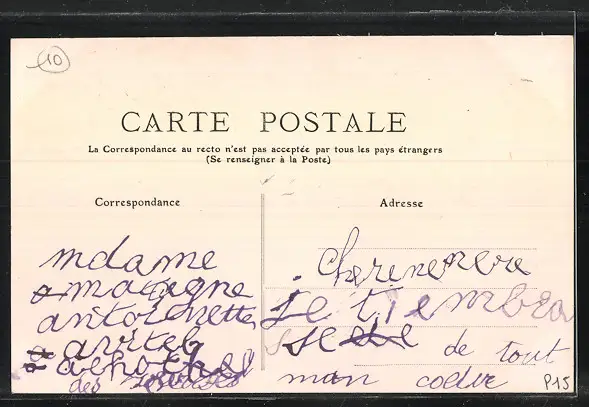 10
CARTE POSTALE
La Correspondance au recto n'est pas acceptée par tous les pays étrangers
(Se renseigner à la Poste)
Correspondance
Adresse
mdame
antoinette
des
Cheremere
je t'iembra
sse de tout
man coeur
P15